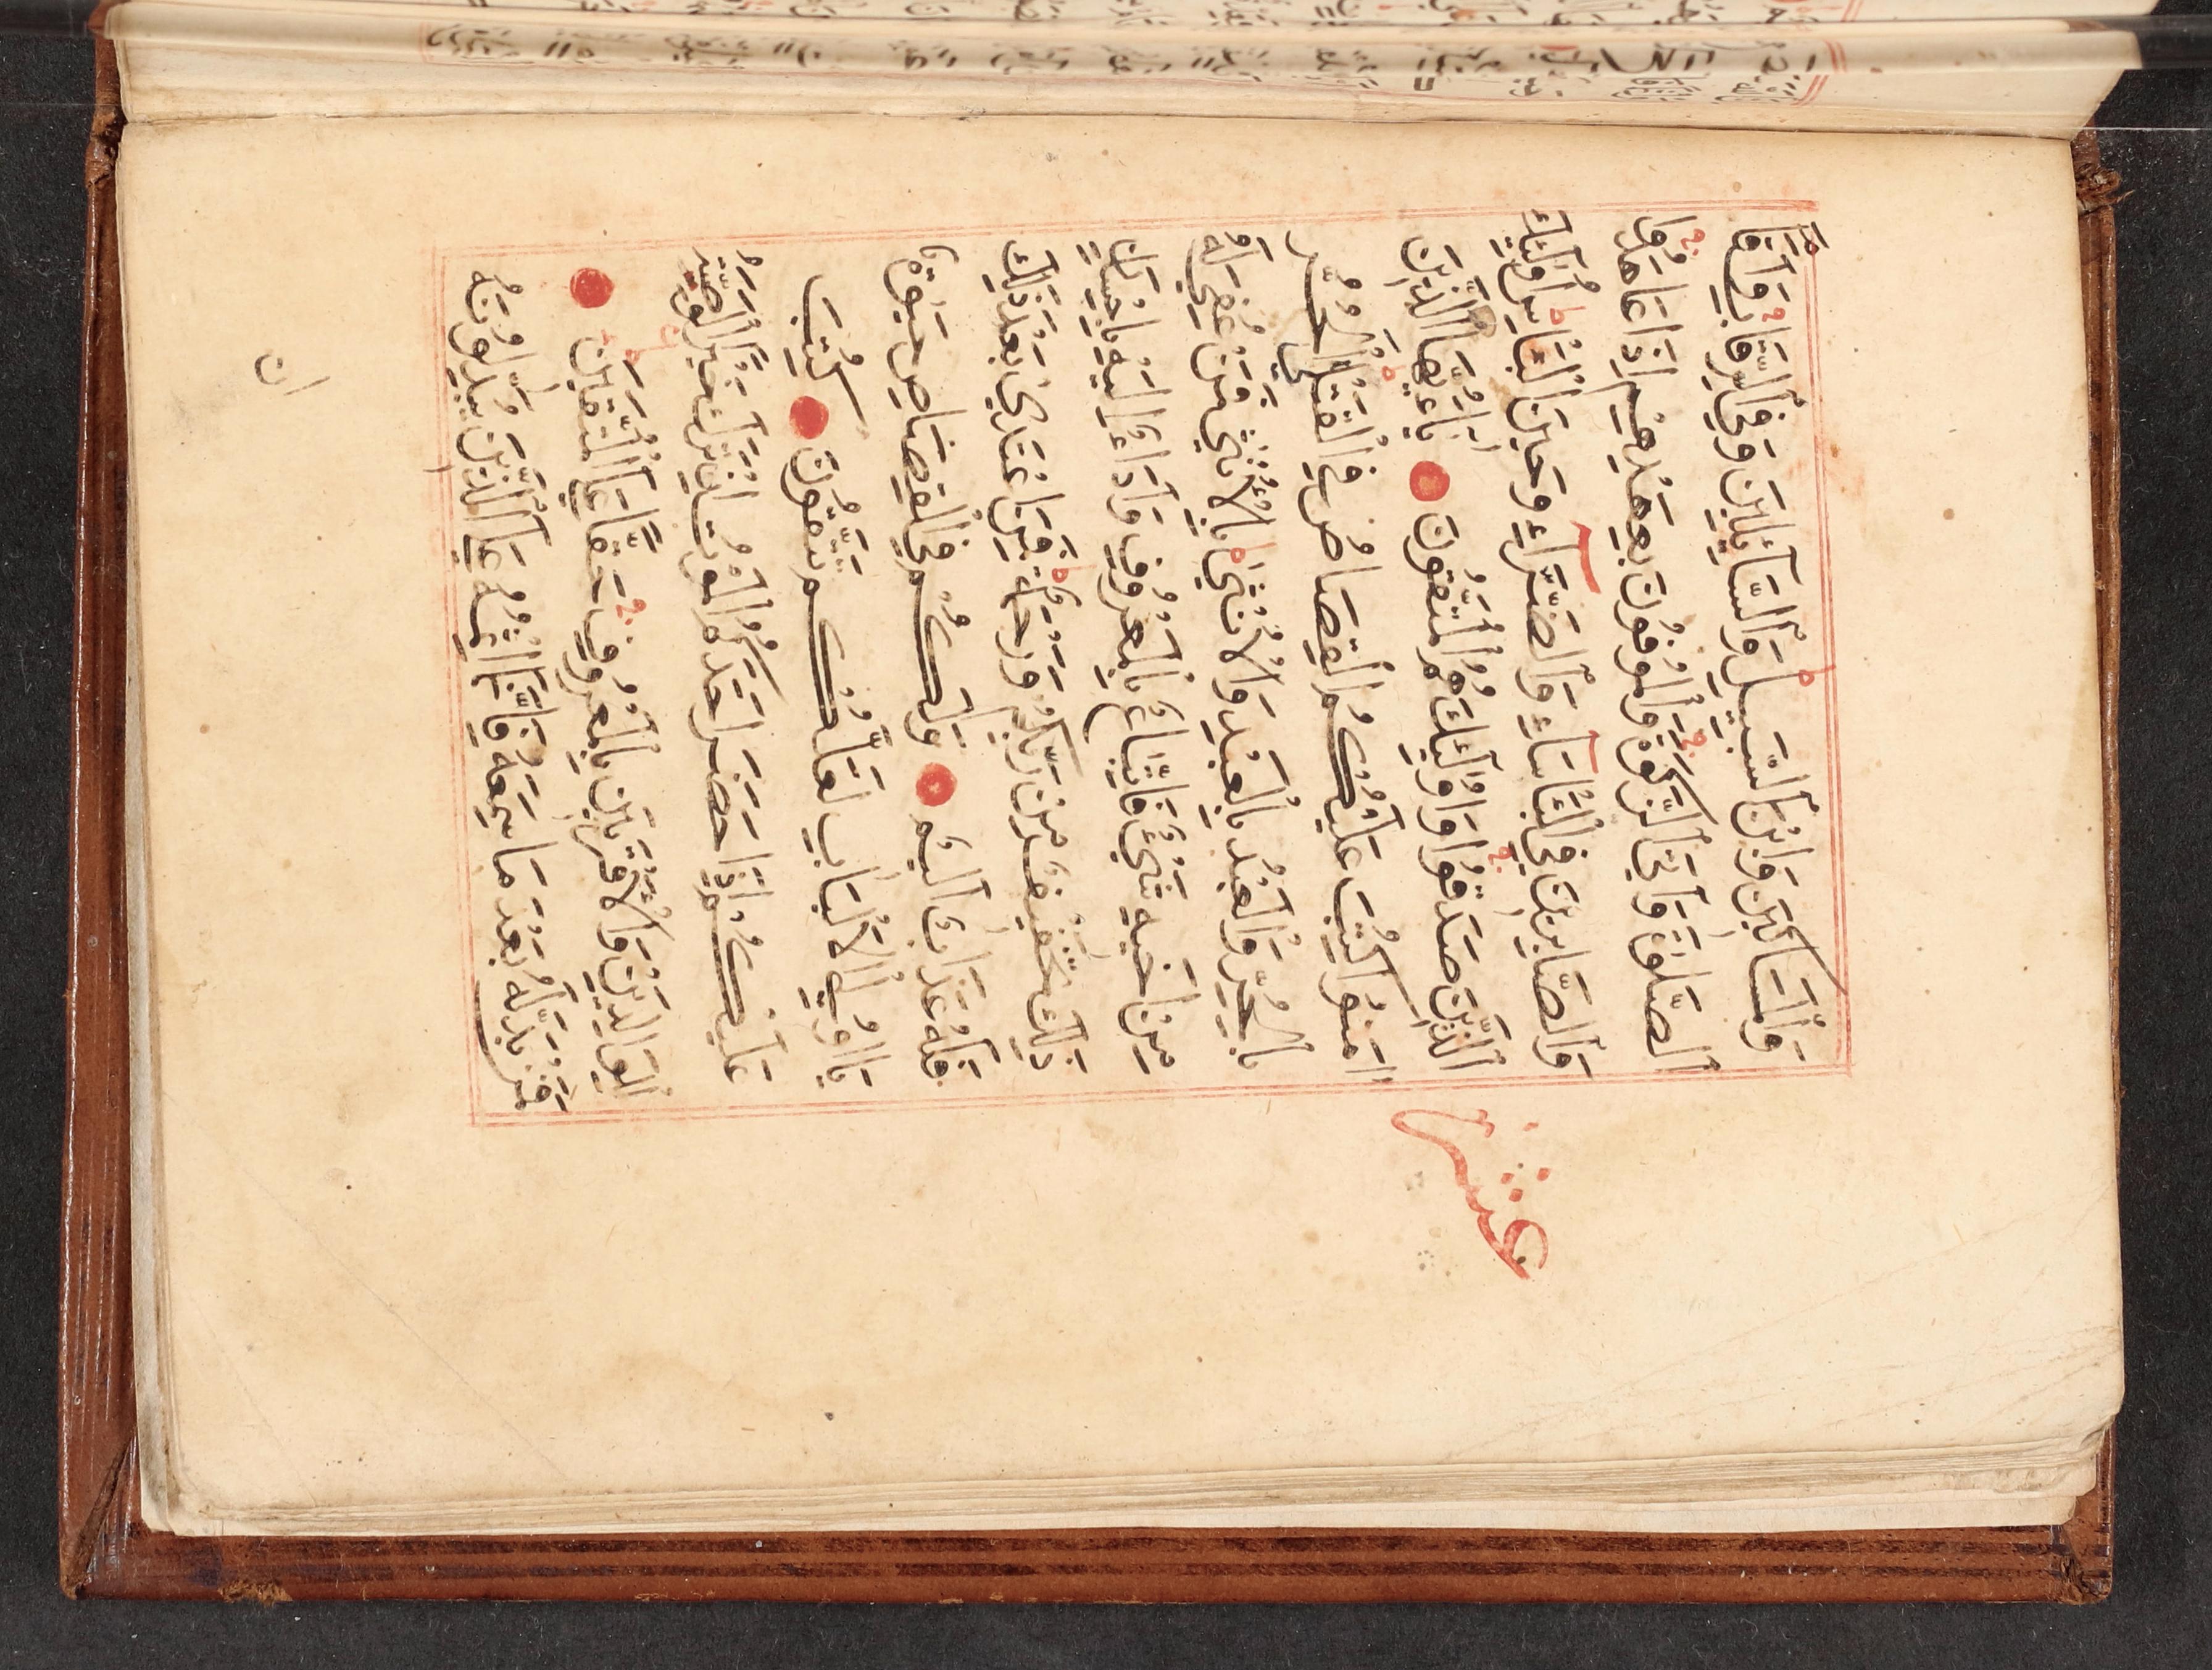 وَٱلْمَسَاكِينَ وَٱبْنَ ٱلسَّبِيلِ وَٱلسَّآئِلِينَ وَفِى ٱلرِّقَابِ وَأَقَامَ
ٱلصَّلَوٰةَ وَءَاتَى ٱلزَّكَوٰةَ وَٱلْمُوفُونَ بِعَهْدِهِمْ إِذَا عَاهَدُوا
وَٱلصَّابِرِينَ فِى ٱلْبَأْسَآءِ وَٱلضَّرَّآءِ وَحِينَ ٱلْبَأْسِ أُولَٰٓئِكَ
ٱلَّذِينَ صَدَقُوا وَأُولَٰٓئِكَ هُمُ ٱلْمُتَّقُونَ يَٰٓأَيُّهَا ٱلَّذِينَ
ءَامَنُوا كُتِبَ عَلَيْكُمُ ٱلْقِصَاصُ فِى ٱلْقَتْلَى ٱلْحُرُّ
بِٱلْحُرِّ وَٱلْعَبْدُ بِٱلْعَبْدِ وَٱلْأُنثَىٰ بِٱلْأُنثَىٰ فَمَنْ عُفِىَ لَهُ
مِنْ أَخِيهِ شَىْءٌ فَٱتِّبَاعٌ بِٱلْمَعْرُوفِ وَأَدَآءٌ إِلَيْهِ بِإِحْسَٰنٍ
ذَٰلِكَ تَخْفِيفٌ مِن رَّبِّكُمْ وَرَحْمَةٌ فَمَنِ ٱعْتَدَىٰ بَعْدَ ذَٰلِكَ
فَلَهُ عَذَابٌ أَلِيمٌ وَلَكُمْ فِى ٱلْقِصَاصِ حَيَوٰةٌ
يَٰٓأُولِى ٱلْأَلْبَابِ لَعَلَّكُمْ تَتَّقُونَ كُتِبَ
عَلَيْكُمْ إِذَا حَضَرَ أَحَدَكُمُ ٱلْمَوْتُ إِن تَرَكَ خَيْرًا ٱلْوَصِيَّةُ
لِلْوَٰلِدَيْنِ وَٱلْأَقْرَبِينَ بِٱلْمَعْرُوفِ حَقًّا عَلَى ٱلْمُتَّقِينَ
فَمَن بَدَّلَهُ بَعْدَ مَا سَمِعَهُ فَإِنَّمَآ إِثْمُهُ عَلَى ٱلَّذِينَ يُبَدِّلُونَهُ
ان
عشر